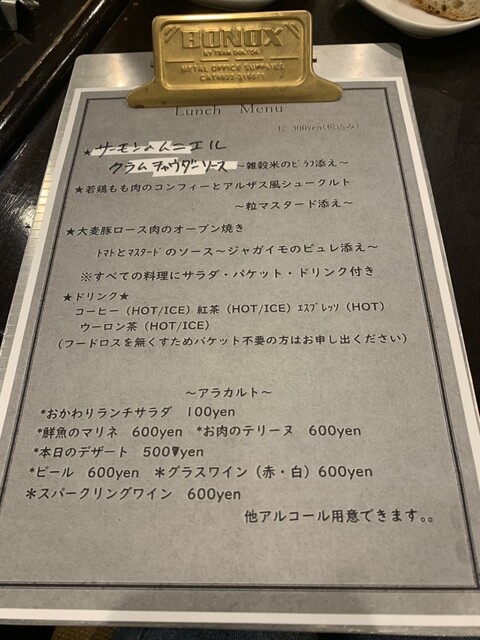 BONOX
BY TEAM DOKTOR
METAL OFFICE SUPPLIES
Lunch Menu
1,300yen(税込み)
★サーモンのムニエル
クラムチャウダーソース ～雑穀米のﾋﾟﾗﾌ添え～
★若鶏もも肉のコンフィーとアルザス風シュークルト
～粒マスタード添え～
★大麦豚ロース肉のオーブン焼き
ﾄﾏﾄとﾏｽﾀｰﾄﾞのソース～ジャガイモのピュレ添え～
※すべての料理にサラダ・バケット・ドリンク付き
★ドリンク★
コーヒー（HOT/ICE）紅茶（HOT/ICE）ｴｽﾌﾟﾚｯｿ（HOT）
ウーロン茶（HOT/ICE）
(フードロスを無くすためバケット不要の方はお申し出ください）
～アラカルト～
*おかわりランチサラダ 100yen
*鮮魚のマリネ 600yen *お肉のテリーヌ 600yen
*本日のデザート 500yen
*ビール 600yen ＊グラスワイン（赤・白）600yen
＊スパークリングワイン 600yen
他アルコール用意できます。。